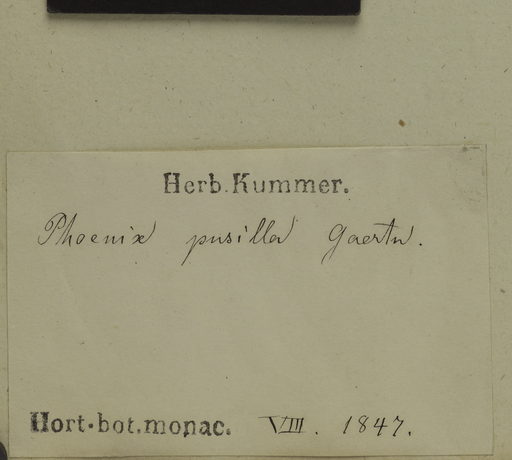 Herb. Kummer.
Phoenix pusilla Gaertn.
Hort. bot. monac. VIII. 1847.